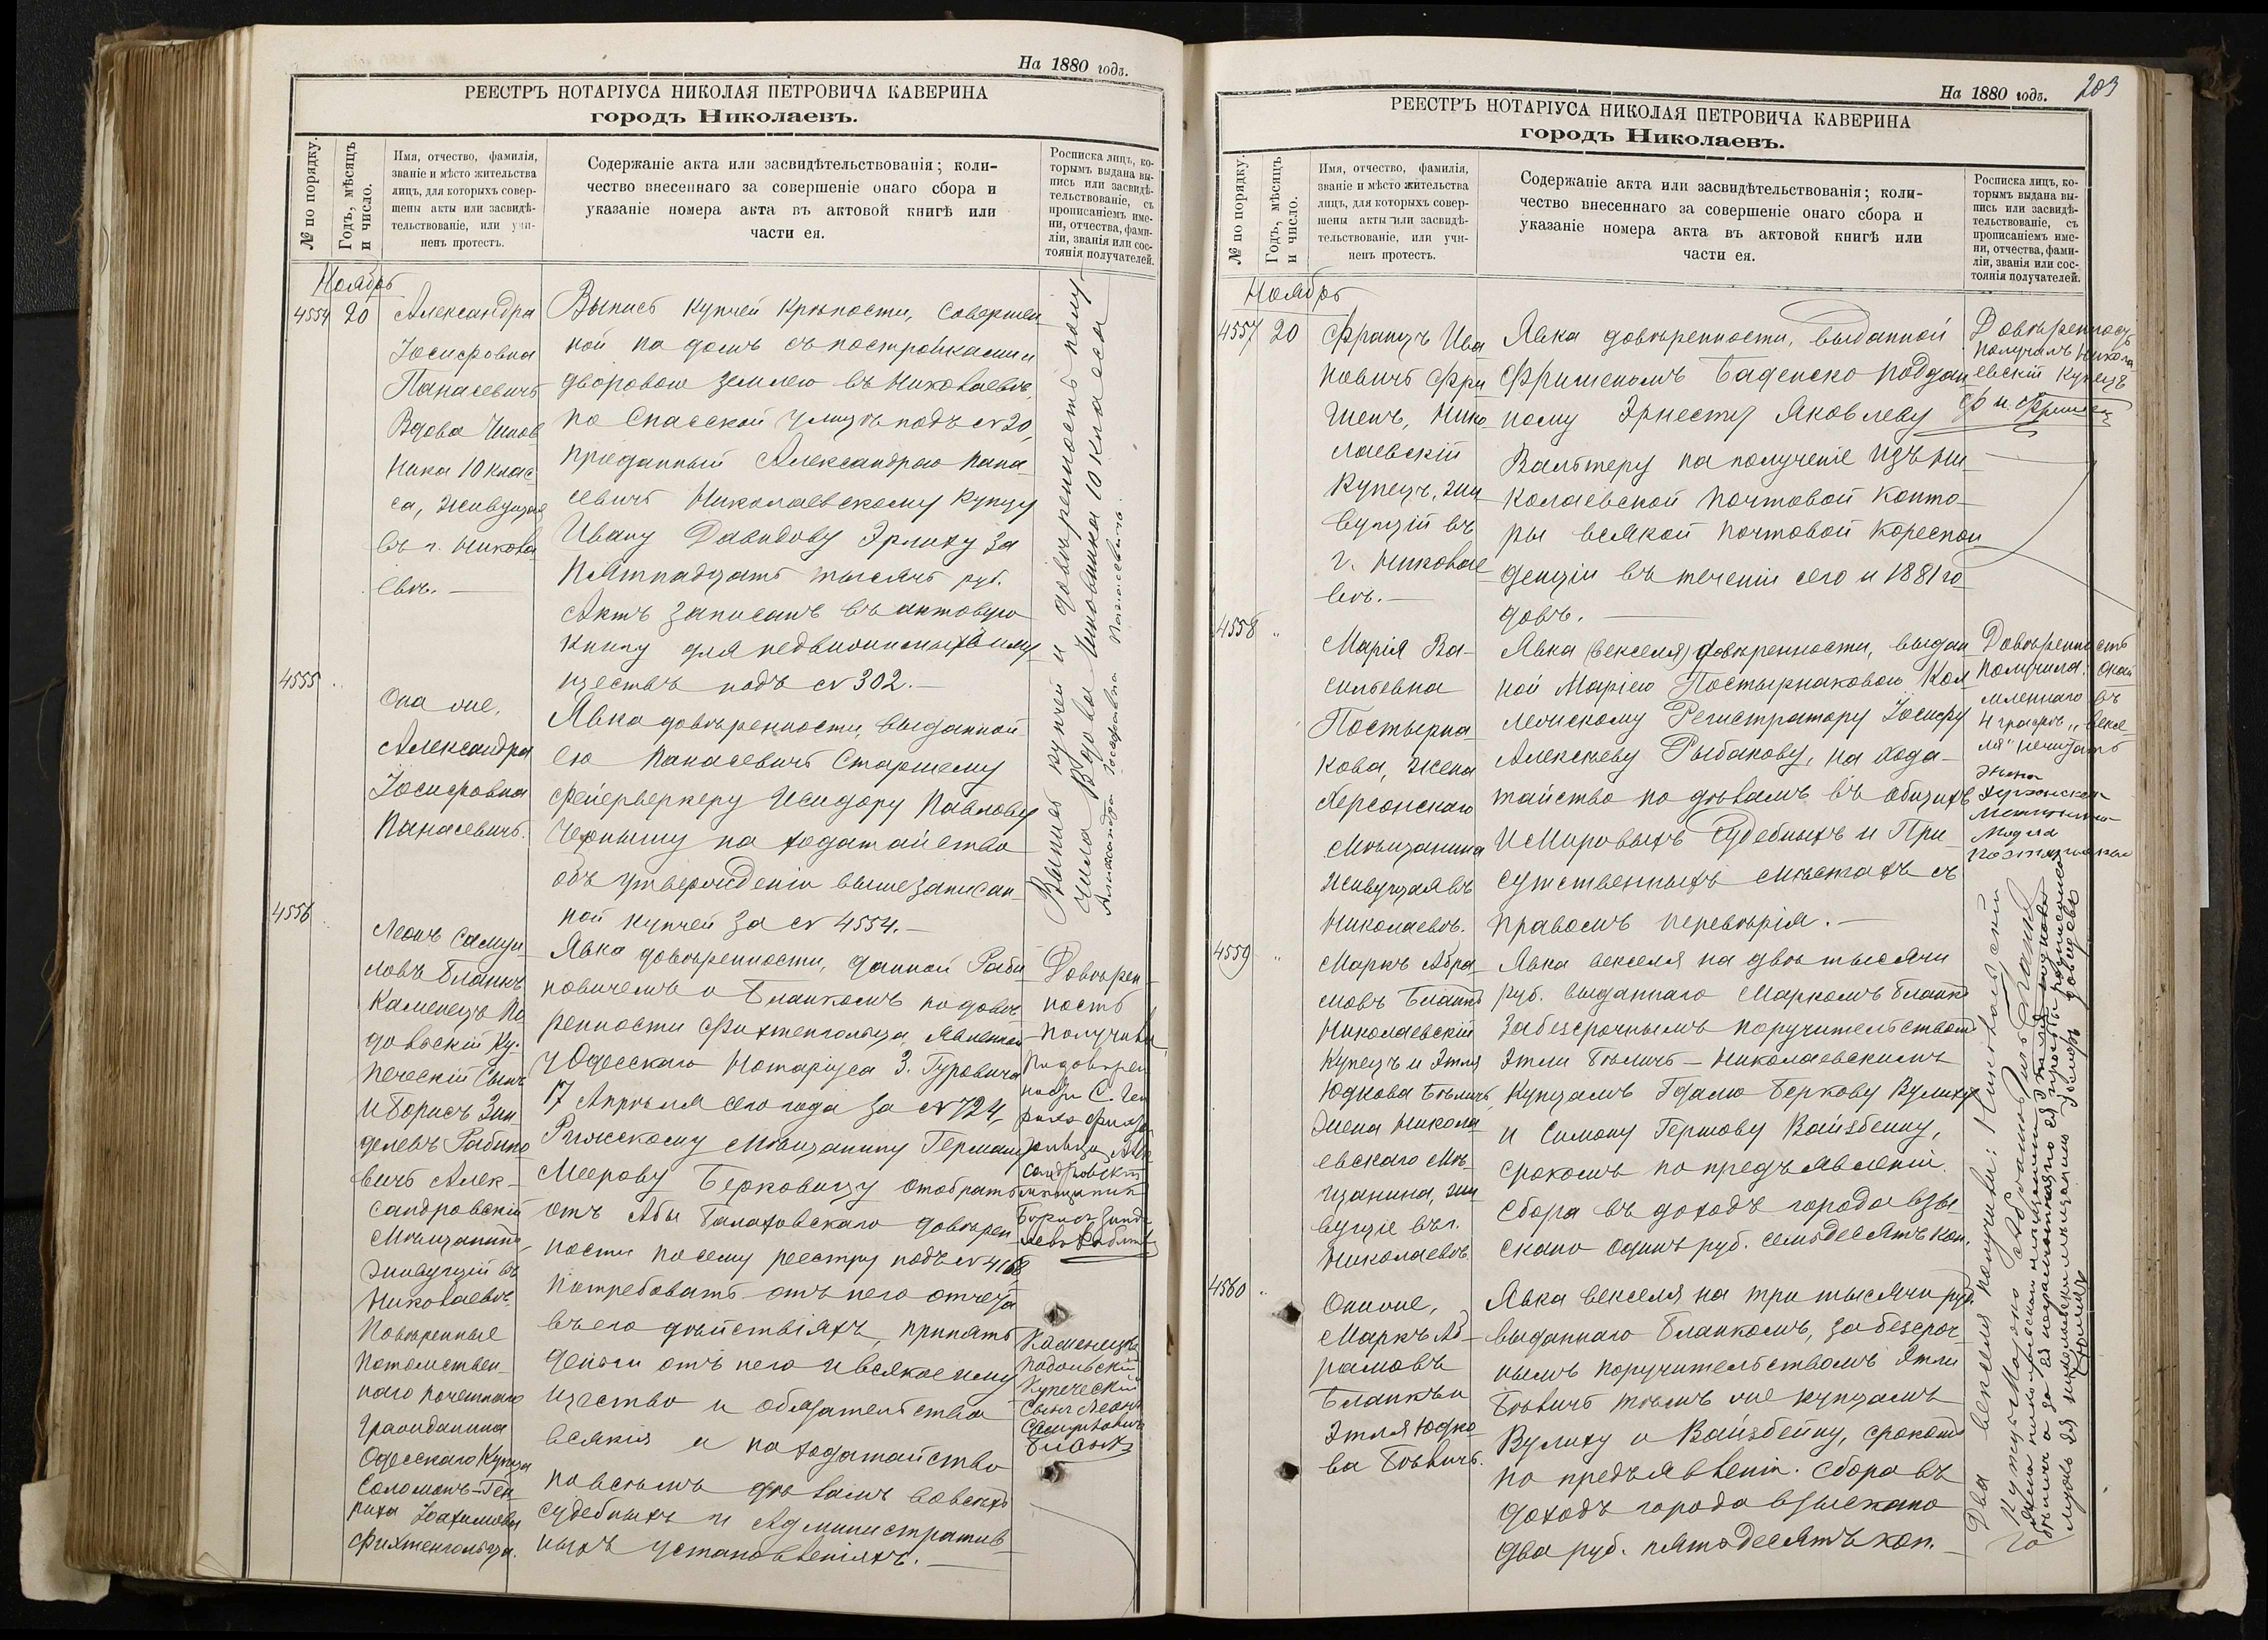 На 1880 годъ.
РЕЕСТРЪ НОТАРІУСА НИКОЛАЯ ПЕТРОВИЧА КАВЕРИНА
городъ Николаевъ.
№ по порядку.
Годъ, мѣсяцъ
и число.
Имя, отчество, фамилія,
званіе и мѣсто жительства
лицъ, для которыхъ совер-
шены акты или засвидѣ-
тельствованіе, или учи-
ненъ протестъ.
Содержаніе акта или засвидѣтельствованія; коли-
чество внесеннаго за совершеніе онаго сбора и
указаніе номера акта въ актовой книгѣ или
части ея.
Росписка лицъ, ко-
торымъ выдана вы-
пись или засвидѣ-
тельствованіе, съ
прописаніемъ име-
ни, отчества, фами-
ліи, званія или сос-
тоянія получателей.
Ноябрь
4554 20
Александра
Іосифовна
Панасевичъ
Вдова Чинов
ника 10 клас
са, живущая
въ г. Никола
евѣ.
Выпись купчей крѣпости, совершен
ной на домъ съ постройками и
дворовою землею въ Николаевѣ,
по Спасской улицѣ подъ № 20,
преданный Александрою Пана
севичъ Николаевскому купцу
Ивану Давидову Эрлиху за
Пятнадцать тысячъ руб.
Актъ записанъ въ актовую
книгу для недвижимыхъ иму
ществъ подъ № 302.
Выпись купчей и довѣренность полу
чила Вдова Чиновника 10 класса
Александра Іосифовна Панасевичъ.
4555
Она же,
Александра
Іосифовна
Панасевичъ.
Явка довѣренности, выданной
ею Панасевичъ Старшему
фейерверкеру Исидору Павлову
Чернышу на ходатайство
объ утвержденіи вышезаписан
ной купчей за № 4554.
4556
Леонъ Самуи
ловъ Бланкъ
Каменецъ По
дольскій Ку-
печескій Сынъ
и Борисъ Зин
делевъ Рабино
вичъ Алек-
сандровскій
Мѣщанинъ,
живущій въ
Николаевѣ
Повѣренные
Потомствен-
наго почетнаго
Гражданина
Одесскаго Купца
Соломонъ-Ген
риха Іоахимова
Фихтенгольца.
Явка довѣренности, данной Раби
новичемъ и Бланкомъ по довѣ
ренности Фихтенгольца явленной
у Одесскаго Нотаріуса З. Гуровича
17 Апрѣля сего года за № 724,
Рижскому Мѣщанину Герману
Меерову Берковицу отобрать
отъ Абы Балаховскаго довѣрен
ности по сему реестру подъ № 4168
потребовать отъ него отчета
въ его дѣйствіяхъ, принять
деньги отъ него и всякое иму
щество и обязательства
всякія и на ходатайство
по всѣмъ дѣламъ во всѣхъ
судебныхъ и Административ
ныхъ установленіяхъ.
Довѣрен
ность
получили
Каменецъ
Подольскій
Купеческій
Сынъ Леонъ
Самуиловичъ
Бланкъ
На 1880 годъ. 203
РЕЕСТРЪ НОТАРІУСА НИКОЛАЯ ПЕТРОВИЧА КАВЕРИНА
городъ Николаевъ.
№ по порядку.
Годъ, мѣсяцъ
и число.
Имя, отчество, фамилія,
званіе и мѣсто жительства
лицъ, для которыхъ совер-
шены акты или засвидѣ-
тельствованіе, или учи-
ненъ протестъ.
Содержаніе акта или засвидѣтельствованія; коли-
чество внесеннаго за совершеніе онаго сбора и
указаніе номера акта въ актовой книгѣ или
части ея.
Росписка лицъ, ко-
торымъ выдана вы-
пись или засвидѣ-
тельствованіе, съ
прописаніемъ име-
ни, отчества, фами-
ліи, званія или сос-
тоянія получателей.
Ноябрь
4557 20
Францъ Ива
новичъ Фри
шенъ, Нико
лаевскій
Купецъ, жи
вущій въ
г. Николае
вѣ.
Явка довѣренности, выданной
Фришеномъ Баденско подан
ному Эрнесту Яковлеву
Вальтеру на полученіе изъ Ни
колаевской почтовой конто
ры всякой почтовой кореспон
денціи въ теченіи сего и 1881 го
довъ.
Довѣренность
получилъ Никола
евскій Купецъ
Ф. И. Фришен
4558 "
Марія Ва-
сильевна
Постырна-
кова, жена
Херсонскаго
Мѣщанина
живущая въ
Николаевѣ.
Явка (векселя) довѣренности, выдан
ной Маріею Постырнаковою Кол
лежскому Регистратору Іосифу
Алексѣеву Рыбакову, на хода-
тайство по дѣламъ въ общихъ
и Мировыхъ Судебныхъ и При
сутственныхъ мѣстахъ съ
правомъ перевѣрія.
Довѣренность
получила.
въ
4 графѣ "вексе
ля" нечитать
жена
4559 "
Маркъ Абра
мовъ Бланкъ
Николаевскій
Купецъ и Этля
Юдкова Бѣличъ,
жена Никола
евскаго Мѣ-
щанина, жи
вущіе въ г.
Николаевѣ
Явка векселя на двѣ тысячи
руб. выданнаго Маркомъ Бланкъ
за безсрочнымъ поручительствомъ
Этли Бѣличъ - Николаевскимъ
Купцамъ Гдалю Беркову Вулиху
и Симону Гершову Вайзбейну,
срокомъ по предъявленіи.
Сбора въ доходъ города взы
скано одинъ руб. семьдесятъ коп.
4560 "
Они же,
Маркъ Аб-
рамовъ
Бланкъ и
Этля Юдко
ва Бѣличъ.
Явка векселя на три тысячи руб.
выданнаго Бланкомъ, за безсроч-
нымъ поручительствомъ Этли
Бѣличъ тѣмъ же купцамъ
Вулиху и Вайзбейну, срокомъ
по предъявленіи. Сбора въ
доходъ города взыскано
два руб. пятьдесятъ коп.
Два векселя получили: Николаевскій
Купецъ Марко Абрамовъ Бланкъ